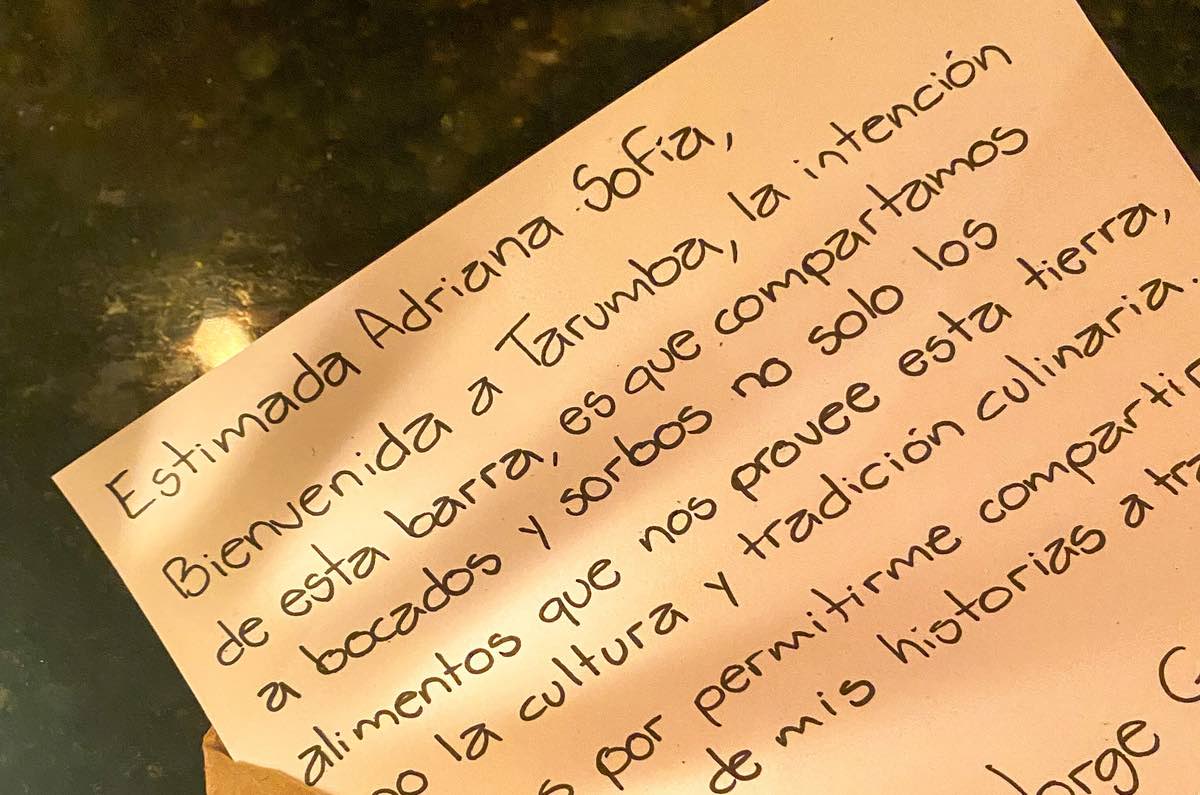 Estimada Adriana Sofía,
Bienvenida a Tarumba, la intención
de esta barra, es que compartamos
a bocados y sorbos no solo los
alimentos que nos provee esta tierra,
la cultura y tradición culinaria.
por permitirme compartir
de mis historias a